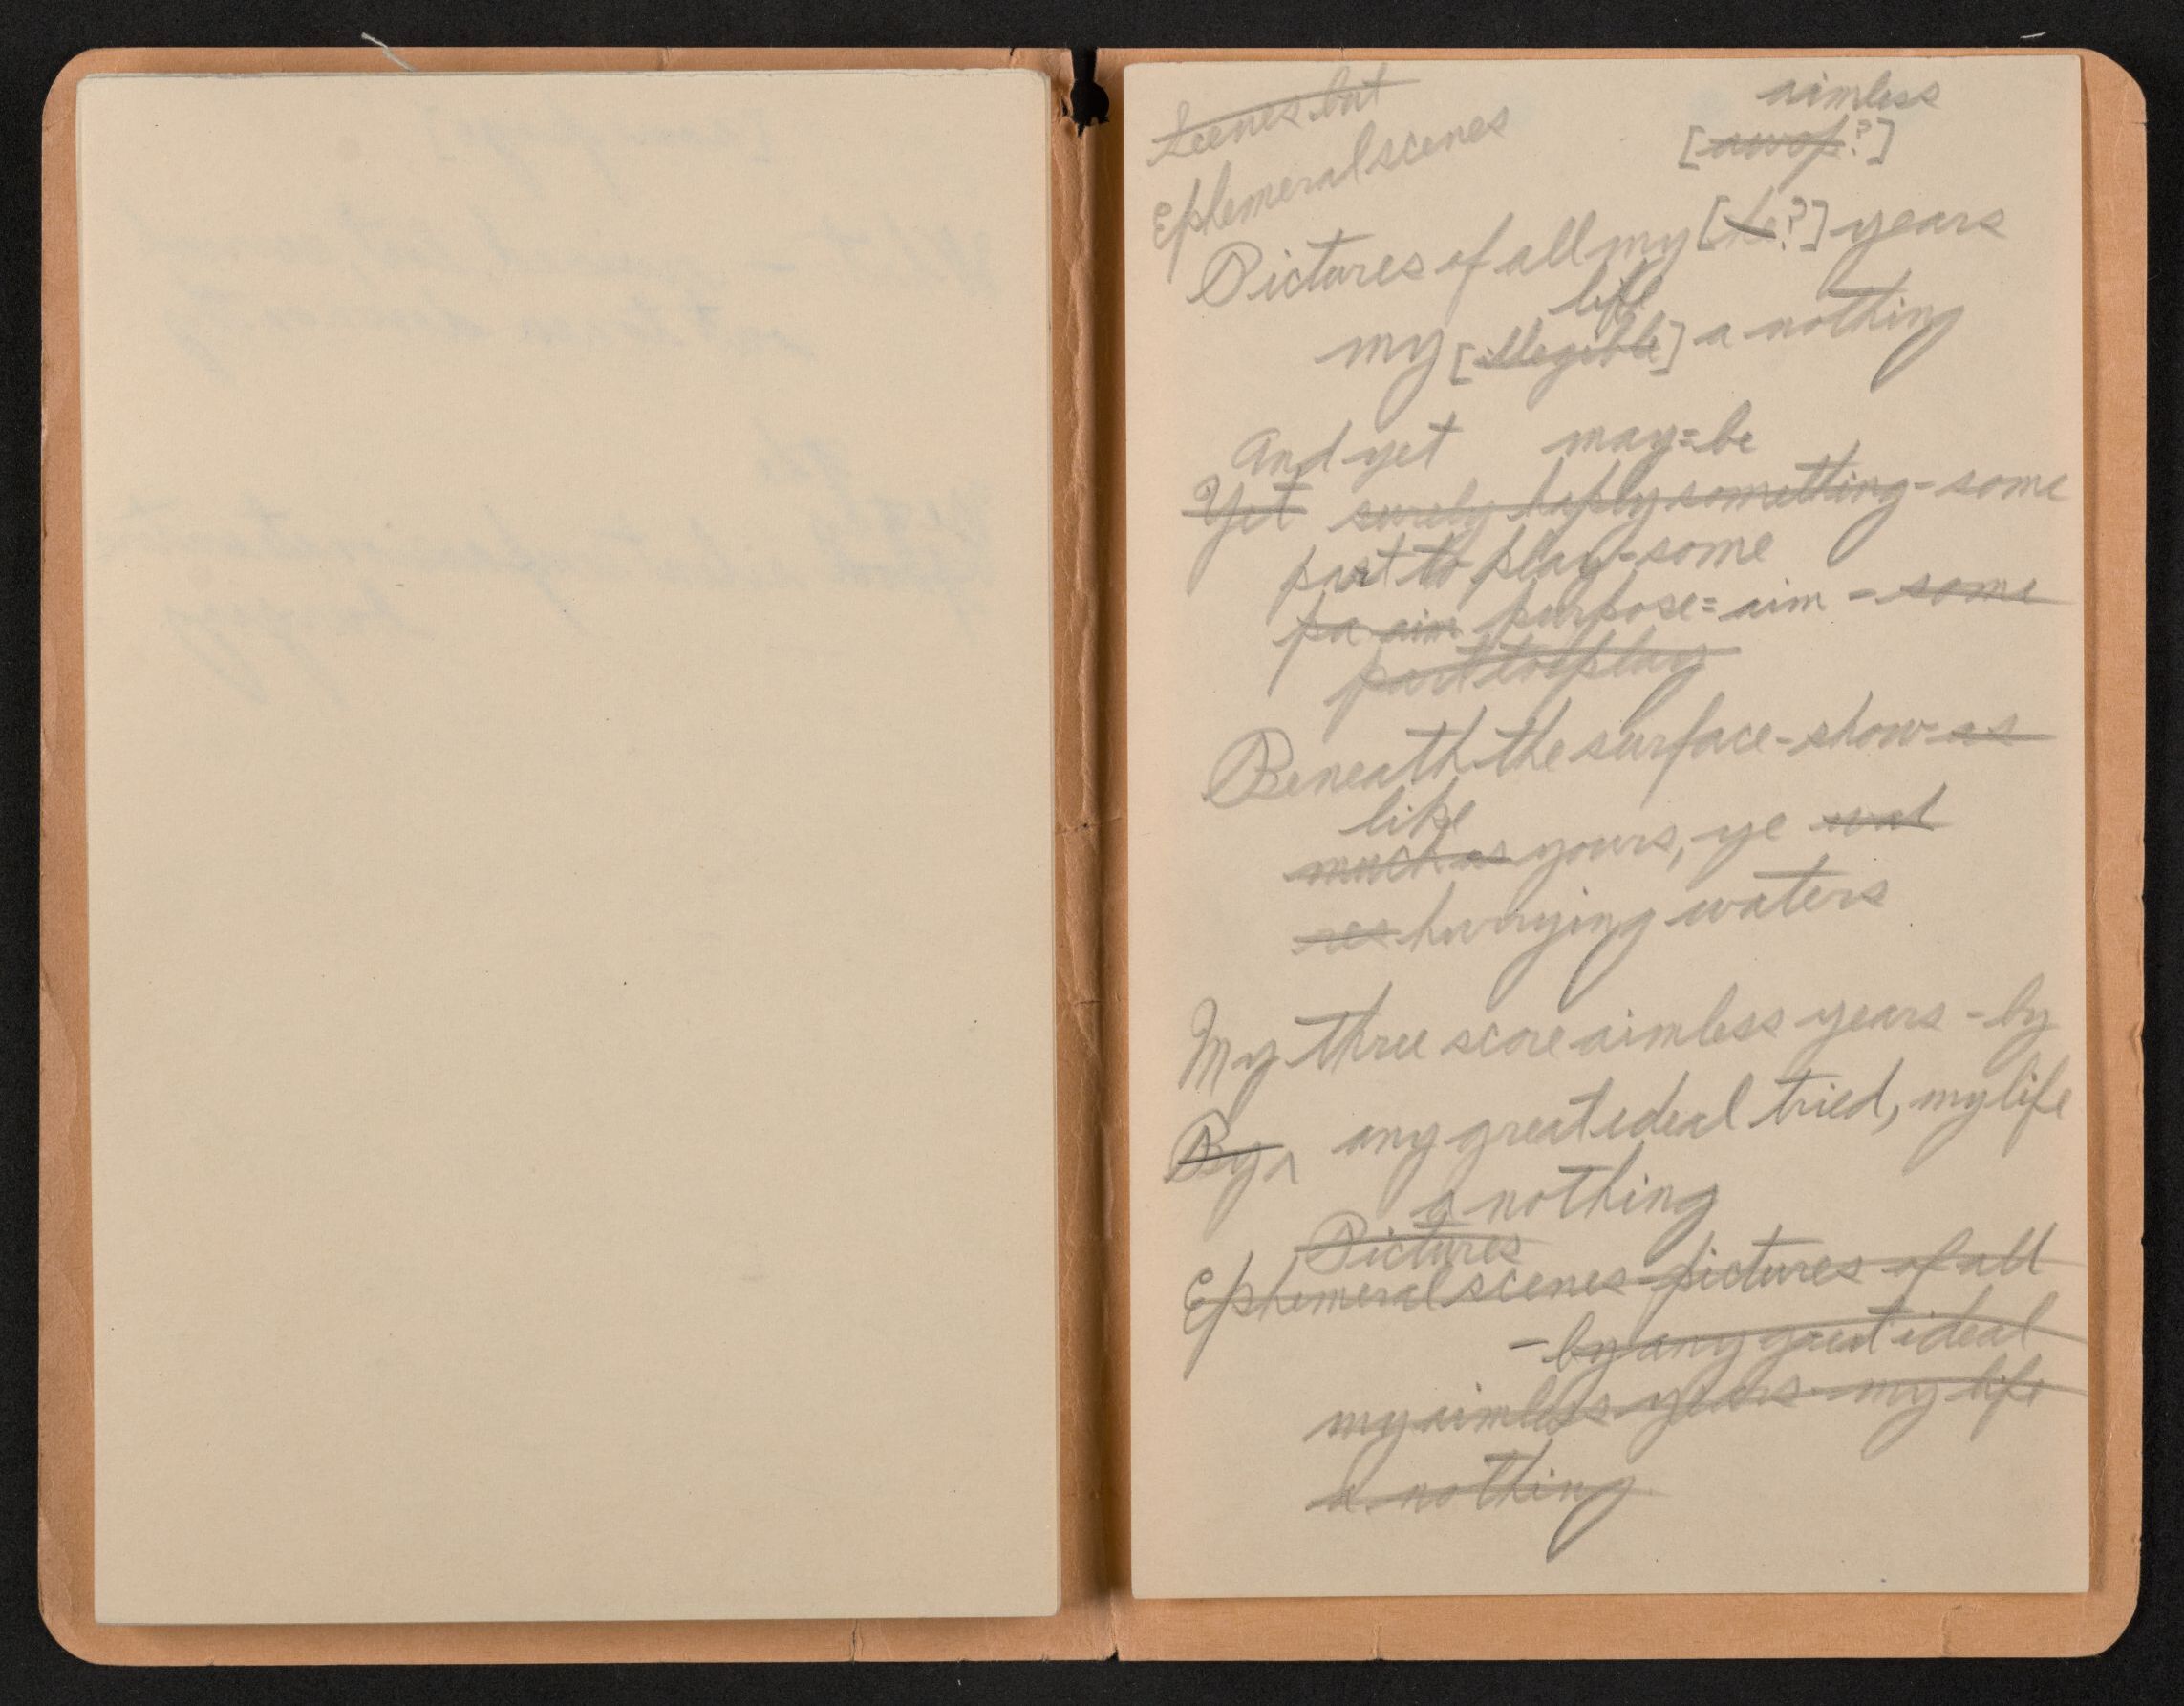 Scenes but
Ephemeral scenes
aimless
[awof?]
Pictures of all my [te?] years
life
my [illegible] a nothing
And yet may=be
Yet surely haply something - some
part to play - some
pa aim purpose = aim - some
part to play
Beneath the surface-show as
like
much as yours, ye wat
res hurrying waters
My three score aimless years - by
By ^ any great ideal tried, my life
a nothing
Pictures
Ephemeral scenes - pictures of all
- by any great ideal
my aimless years - my life
a nothing